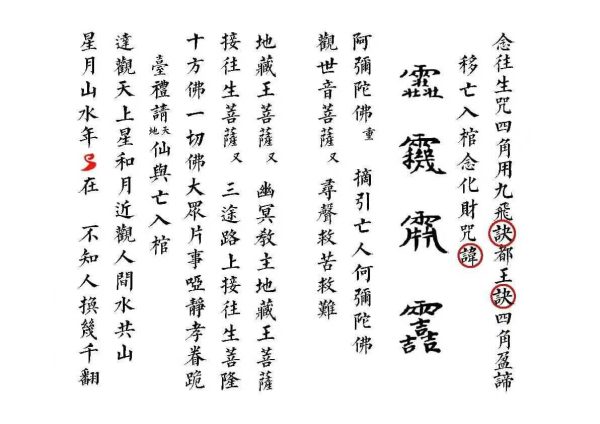 念往生咒四角用九飛訣都王訣四角盈諦
移亡入棺念化財咒諱
阿彌陀佛重 摘引亡人何彌陀佛
觀世音菩薩又 尋聲救苦救難
地藏王菩薩又 幽冥教主地藏王菩薩
接往生菩薩又 三途路上接往生菩隆
十方佛一切佛大眾片事啞靜孝眷跪
臺禮請天地仙與亡入棺
達觀天上星和月近觀人間水共山
星月山水年在 不知人換幾千翻